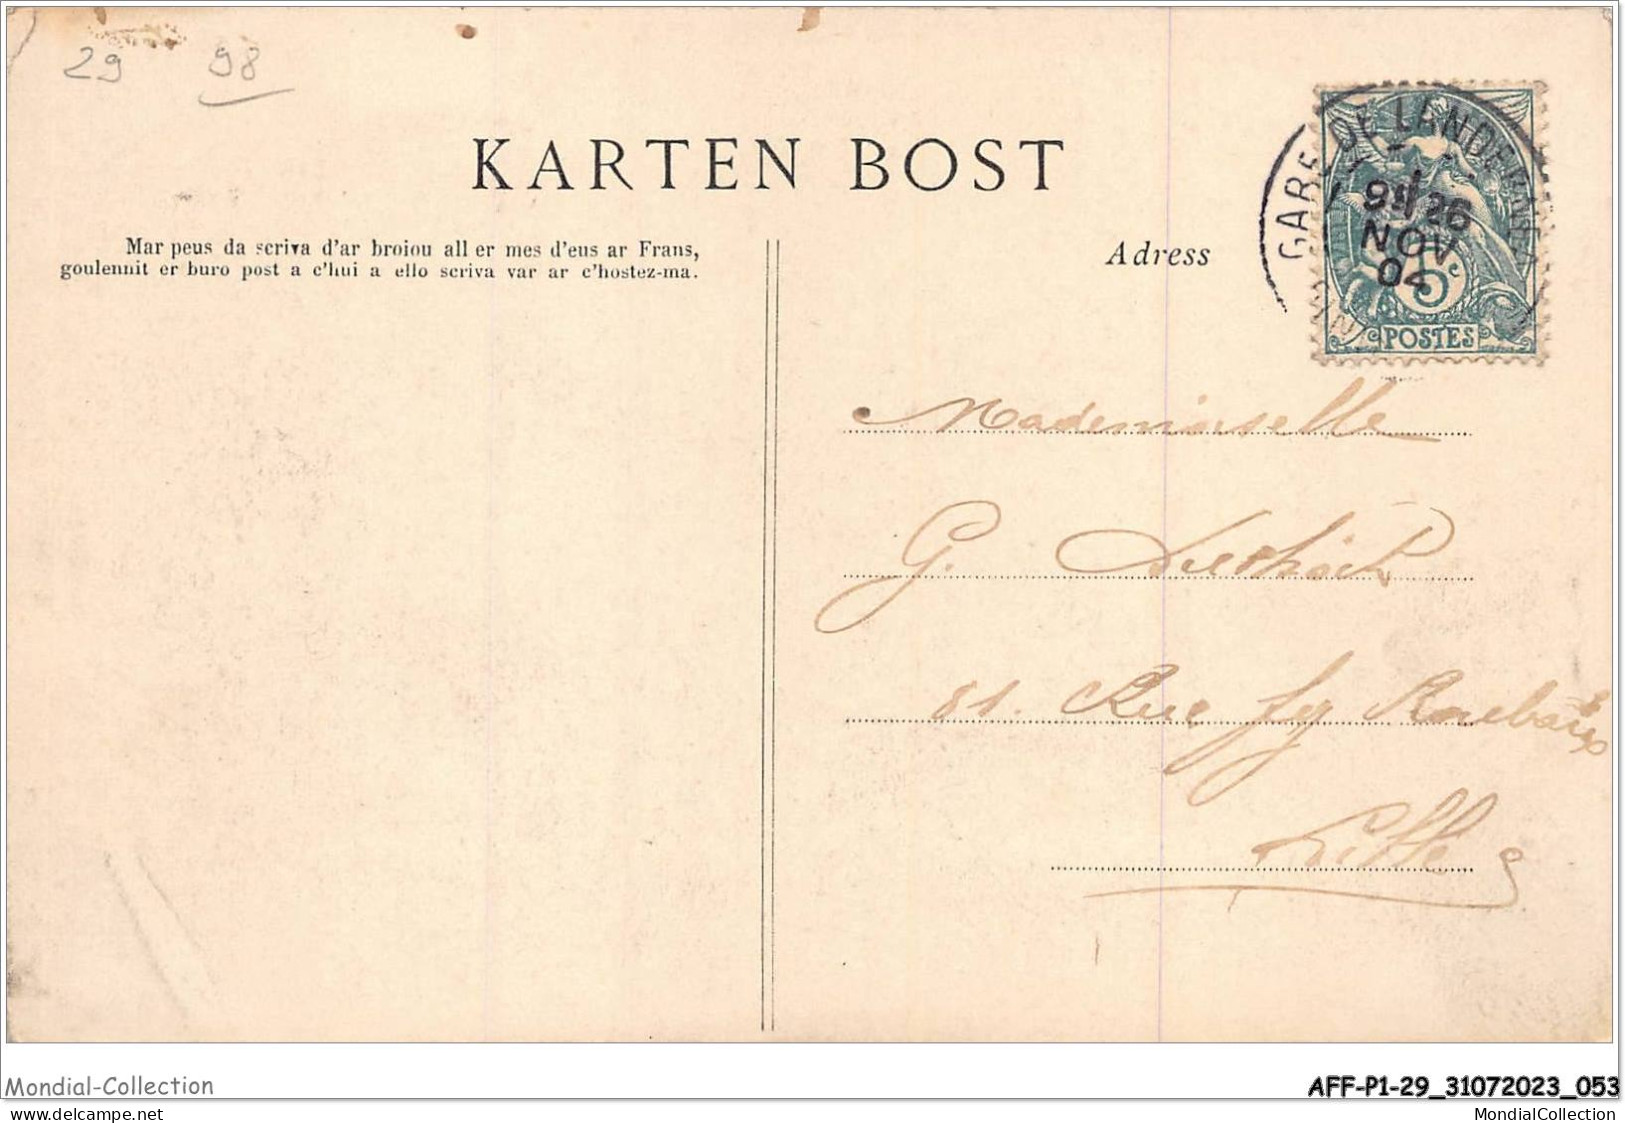 29 98
KARTEN BOST
Mar peus da scriva d'ar broiou all er mes d'eus ar Frans,
goulennit er buro post a c'hui a ello scriva var ar c'hostez-ma.
Adress
GARE DE LANDERNEAU
26
NOV
04
5c
POSTES
Mademoiselle
G.
81. Rue
Lille
Mondial-Collection
AFF-P1-29_31072023_053
delcampe.net
MondialCollection